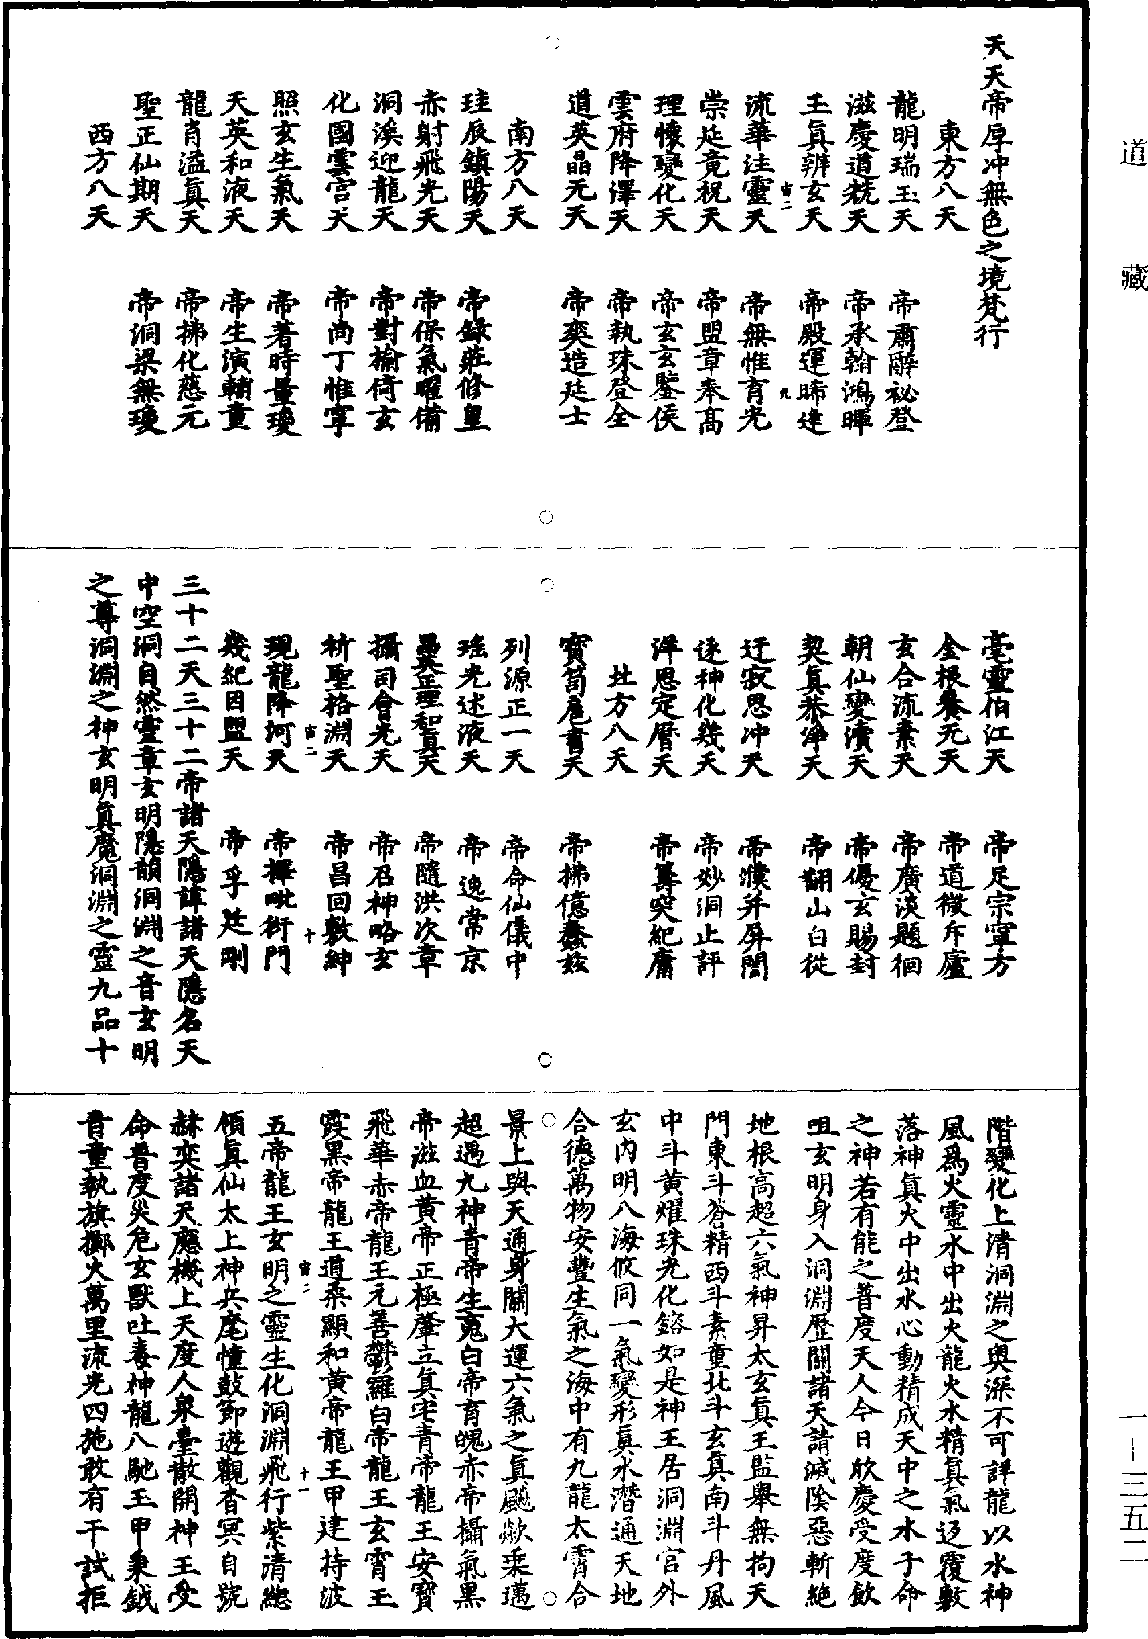 道藏
天天帝厚冲無色之境梵行
東方八天
龍明瑞玉天 帝肅酹祕登
滋慶道兟天 帝承翰鴻暉
王眞辨玄天 帝殿運晞達
宙二 九
流華洼靈天 帝無惟育光
崇延竟祝天 帝盟章奉髙
理懷變化天 帝玄玄鑒侯
雲府降澤天 帝執珠登全
道英晶元天 帝奕造廷士
南方八天
珪辰鎮陽天 帝錄莊修皇
赤射飛光天 帝保氣曜備
洞溪迎龍天 帝對榆倚玄
化國雲宮天 帝尚丁惟寧
照玄生氣天 帝著時量瓊
天英和液天 帝生演輔童
龍肖溢眞天 帝拂化慈元
聖正仙期天 帝洞梁無瓊
西方八天
毫靈伯江天 帝足宗寧方
金根養元天 帝道微斥廬
玄合流素天 帝廣淡題徊
朝仙變瀆天 帝優玄賜封
契眞恭淨天 帝翻山白從
迂寂思冲天 帝濮并屏誾
速神化幾天 帝妙洞止評
洋恩定曆天 帝筭突紀庸
北方八天
寳笥扈書天 帝拂億蠡姟
列源正一天 帝命仙儀中
瑤光述液天 帝逸常京
正理和眞天 帝隨洪次章
攝司會光天 帝召神略玄
析聖格淵天 帝昌回數紳
宙二 十
現龍降河天 帝擇毗衙門
幾紀因盟天 帝孚廷剛
三十二天三十二帝諸天隱諱諸天隱名天
中空洞自然靈章玄明隱韻洞淵之音玄明
之尊洞淵之神玄明眞魔洞淵之靈九品十
階變化上清洞淵之奥深不可詳龍以水神
風爲火靈水中出火龍火水精眞氣迈覆敷
落神眞火中出水心動精成天中之水子命
之神若有能之普度天人今日欣慶受度飲
咀玄明身入洞淵歷關諸天請滅陰惡斬絶
地根高超六氣神昇太玄眞王監舉無拘天
門東斗蒼精西斗素童北斗玄眞南斗丹風
中斗黄耀珠光化鎔如是神王居洞淵宫外
玄内明八海攸同一氣變形眞水潛通天地
合德萬物安豐生氣之海中有九龍太霄合
景上與天通身關大運六氣之眞飈歘乘邁
超遇九神青帝生䰟白帝育魄赤帝攝氣黑
帝滋血黄帝正極肇立眞宅青帝龍王安寳
飛華赤帝龍王元善鬱羅白帝龍王玄霄玉
霞黑帝龍王道桑顯和黄帝龍王甲建持波
宙二 十一
五帝龍王玄明之靈生化洞淵飛行紫清總
領眞仙太上神兵麾幢鼓節遊觀杳冥自號
赫奕諸天應機上天度人衆臺散開神王受
命普度災危玄獸吐毒神龍八馳玉甲秉鉞
青童執旗擲火萬里流光四施敢有干試拒
一—三五二